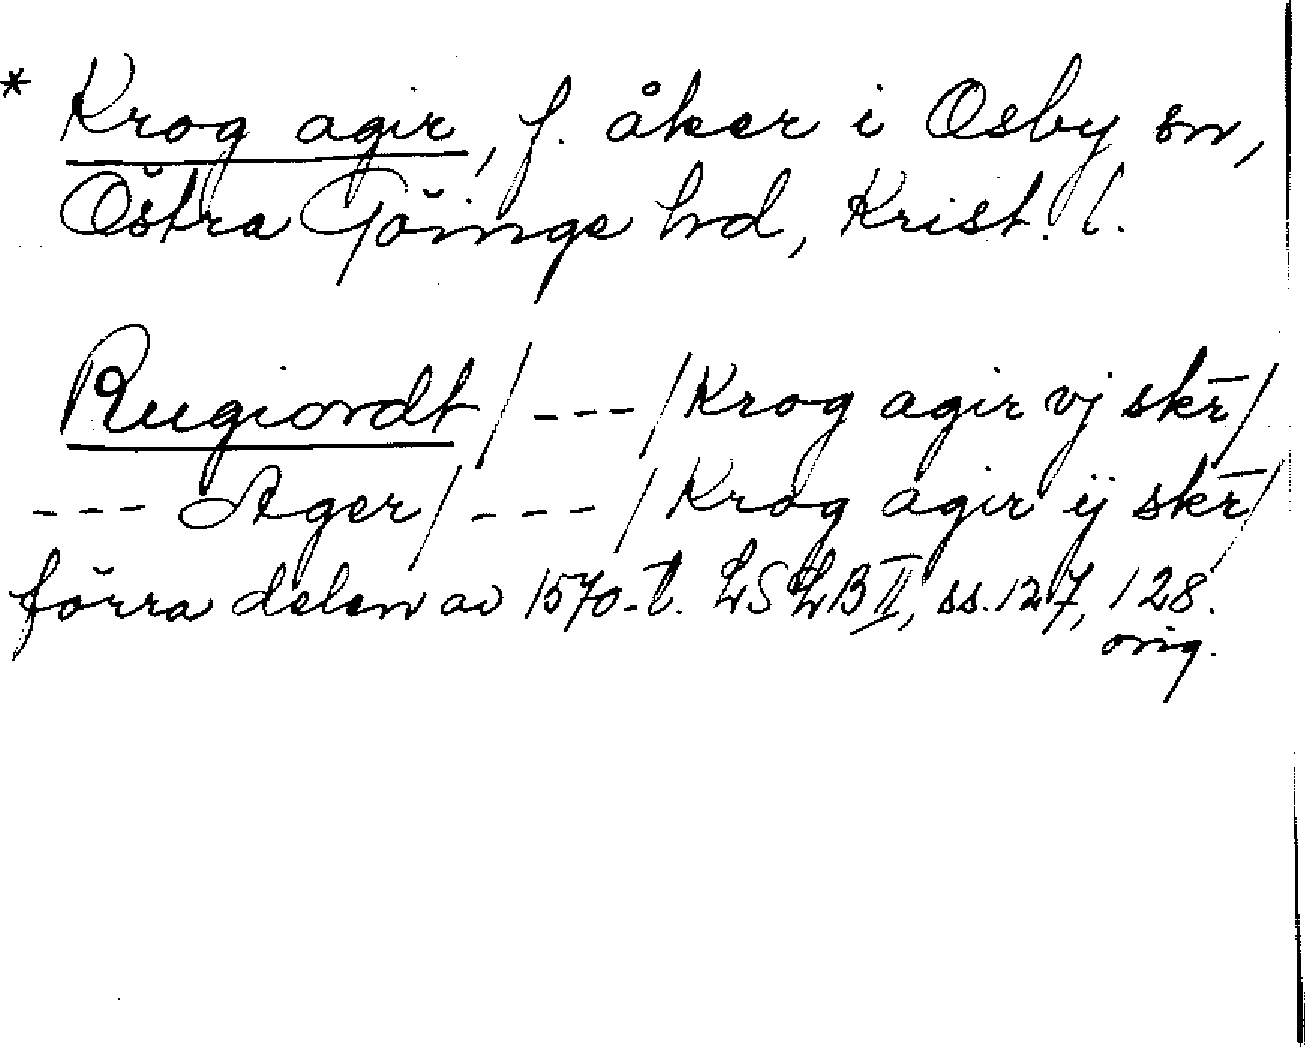 * Krog agir, f. åker i Osby sn,
Östra Göinge hd, Krist. l.
Rugiordt / --- / Krog agir vj skr̄ /
--- Ager / --- / Krog agir ij skr̄ /
förra delen av 1570-t. LSLB II, ss. 127, 128.
orig.